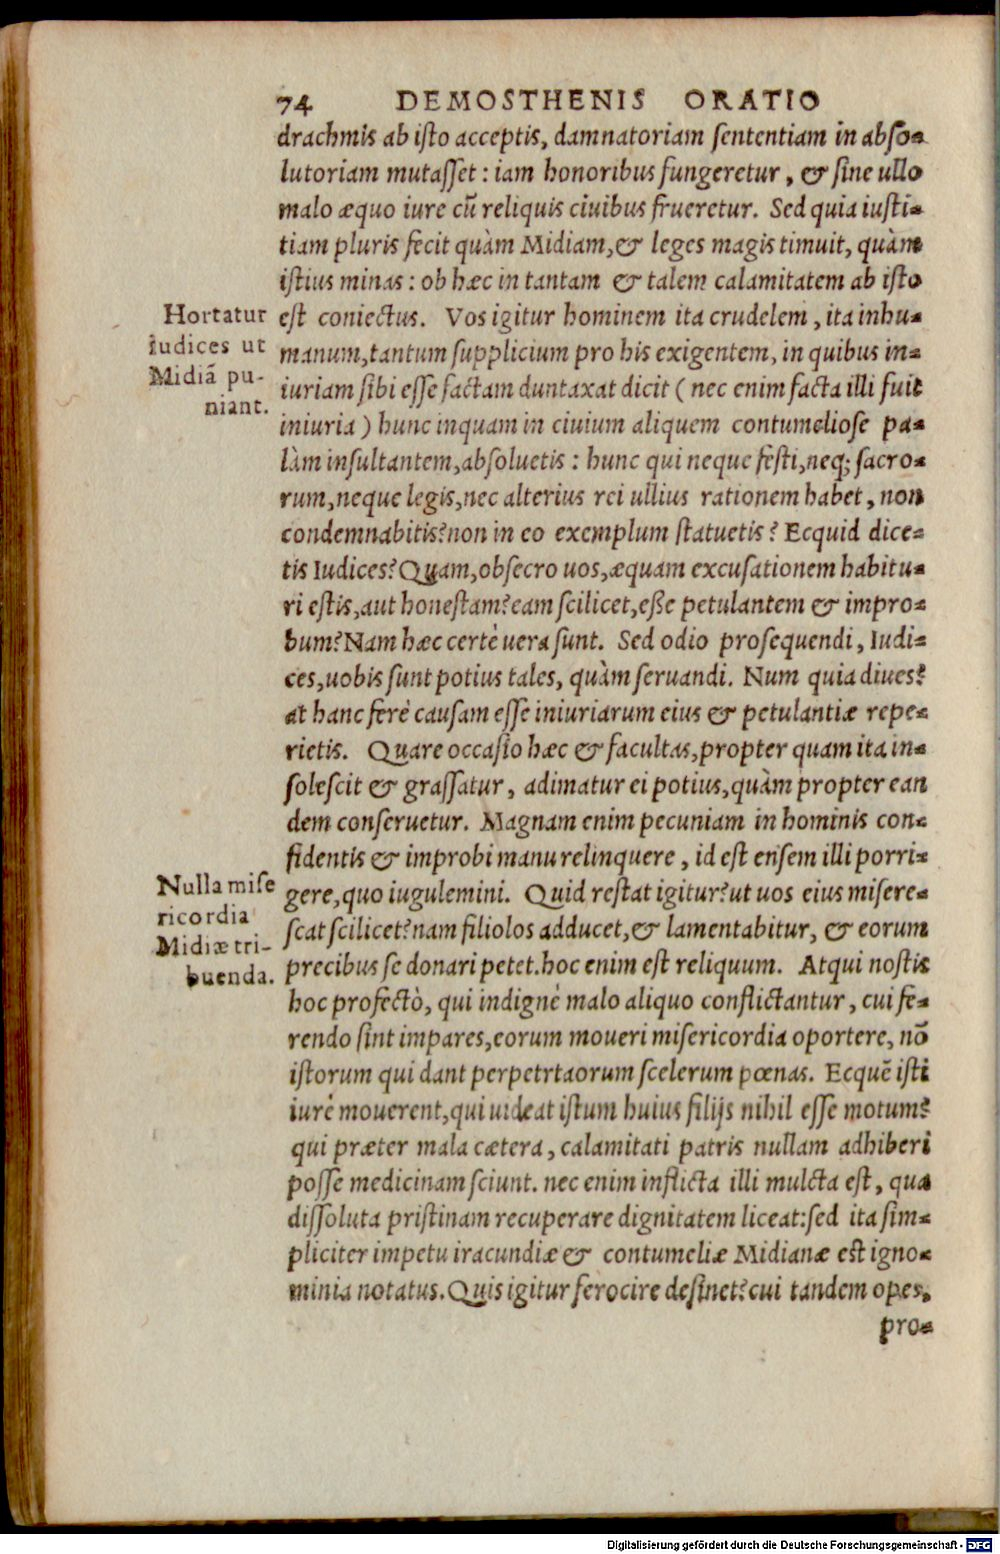 74 DEMOSTHENIS ORATIO
drachmis ab isto acceptis, damnatoriam sententiam in abso-
lutoriam mutasset : iam honoribus fungeretur, & sine ullo
malo æquo iure cū reliquis ciuibus frueretur. Sed quia iusti-
tiam pluris fecit quàm Midiam, & leges magis timuit, quàm
istius minas : ob hæc in tantam & talem calamitatem ab isto
Hortatur
iudices ut
Midiā pu-
niant.
est coniectus. Vos igitur hominem ita crudelem, ita inhu-
manum, tantum supplicium pro his exigentem, in quibus in-
iuriam sibi esse factam duntaxat dicit ( nec enim facta illi fuit
iniuria ) hunc inquam in ciuium aliquem contumeliose pa-
làm insultantem, absoluetis : hunc qui neque festi, neq; sacro-
rum, neque legis, nec alterius rei ullius rationem habet, non
condemnabitis? non in eo exemplum statuetis ? Ecquid dice-
tis Iudices? Quam, obsecro uos, æquam excusationem habitu-
ri estis, aut honestam? eam scilicet, eße petulantem & impro-
bum? Nam hæc certè uera sunt. Sed odio prosequendi, Iudi-
ces, uobis sunt potius tales, quàm seruandi. Num quia diues?
at hanc ferè causam esse iniuriarum eius & petulantiæ repe-
rietis. Quare occasio hæc & facultas, propter quam ita in-
solescit & grassatur, adimatur ei potius, quàm propter ean
dem conseruetur. Magnam enim pecuniam in hominis con-
fidentis & improbi manu relinquere, id est ensem illi porri-
Nulla mise
ricordia
Midiæ tri-
buenda.
gere, quo iugulemini. Quid restat igitur? ut uos eius misere-
scat scilicet? nam filiolos adducet, & lamentabitur, & eorum
precibus se donari petet. hoc enim est reliquum. Atqui nostis
hoc profectò, qui indignè malo aliquo conflictantur, cui fe-
rendo sint impares, eorum moueri misericordia oportere, nō
istorum qui dant perpetrtaorum scelerum pœnas. Ecquē isti
iurè mouerent, qui uideat istum huius filijs nihil esse motum?
qui præter mala cætera, calamitati patris nullam adhiberi
posse medicinam sciunt. nec enim inflicta illi mulcta est, qua
dissoluta pristinam recuperare dignitatem liceat: sed ita sim-
pliciter impetu iracundiæ & contumeliæ Midianæ est igno-
minia notatus. Quis igitur ferocire desinet? cui tandem opes,
pro-
Digitalisierung gefördert durch die Deutsche Forschungsgemeinschaft - DFG